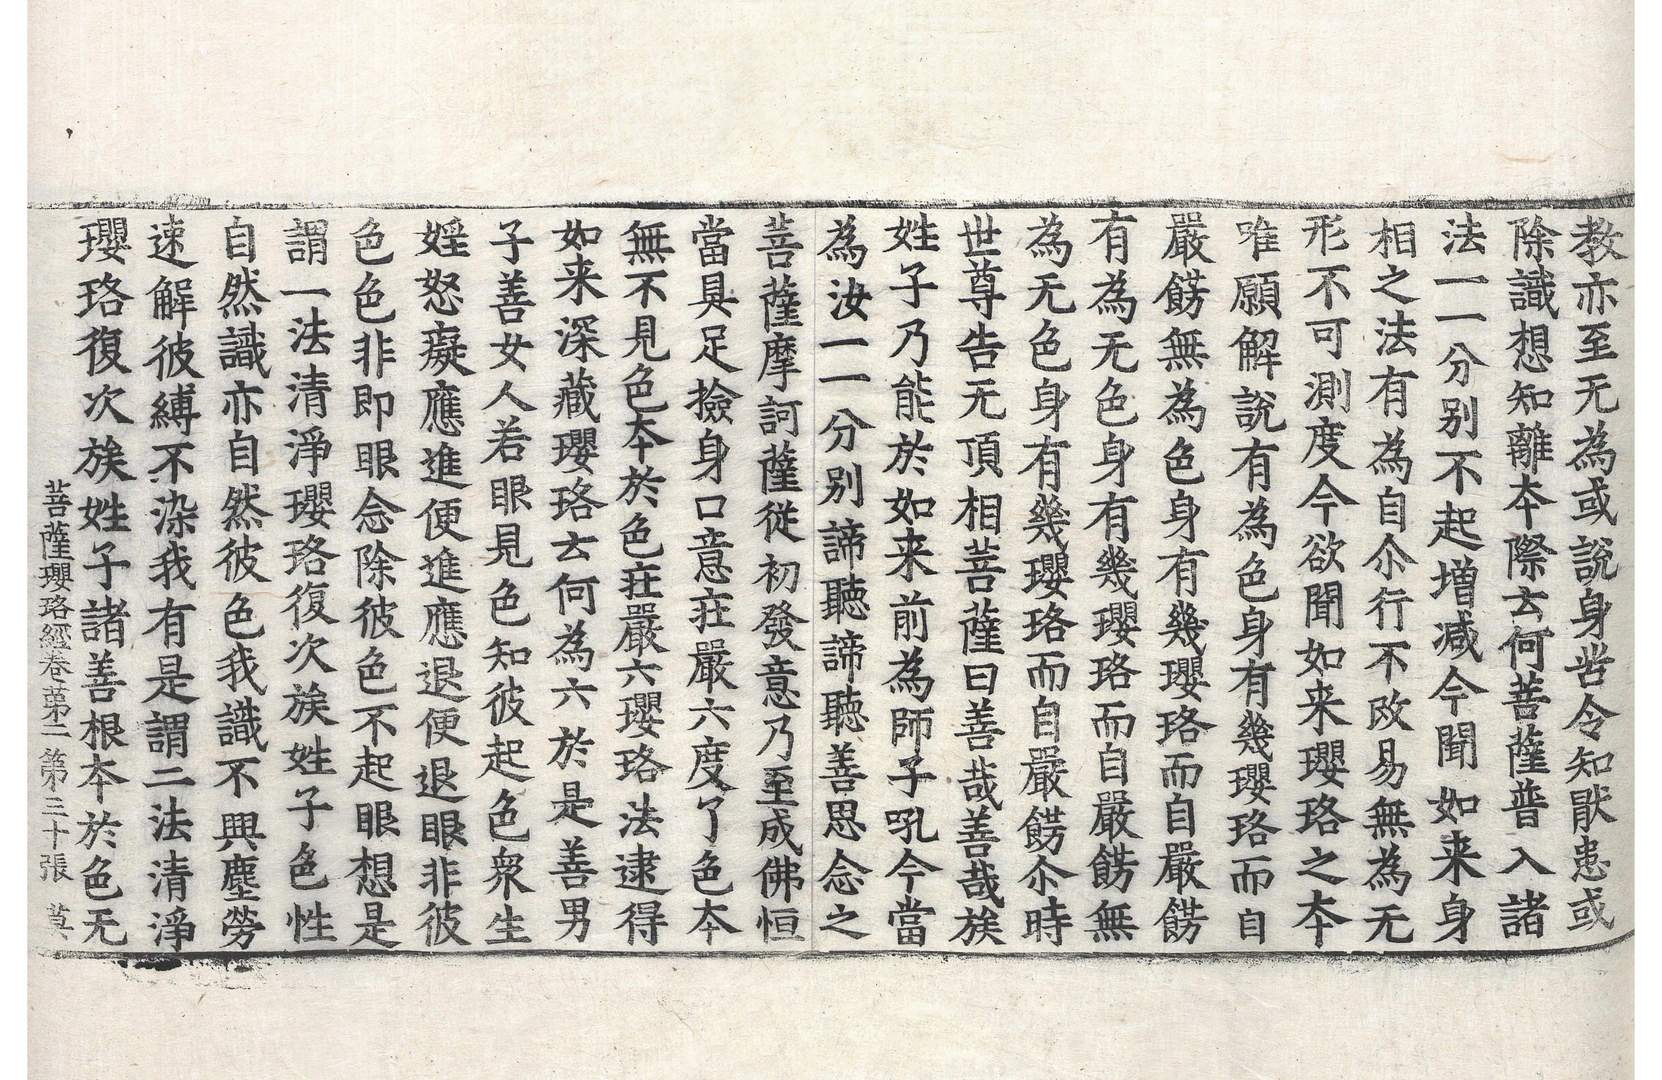 教亦至无為或說身苦令知猒患或
除識想知離夲際云何菩薩普入諸
法一一分別不起增減今聞如来身
相之法有為自尒行不改易無為无
形不可測度今欲聞如来瓔珞之夲
唯願解說有為色身有幾瓔珞而自
嚴餝無為色身有幾瓔珞而自嚴餝
有為无色身有幾瓔珞而自嚴餝無
為无色身有幾瓔珞而自嚴餝尒時
世尊告无頂相菩薩曰善哉善哉族
姓子乃能於如来前為師子吼今當
為汝一一分別諦聽諦聽善思念之
菩薩摩訶薩從初發意乃至成佛恒
當具足撿身口意莊嚴六度了色夲
無不見色夲於色莊嚴六瓔珞法逮得
如来深藏瓔珞云何為六於是善男
子善女人若眼見色知彼起色衆生
婬怒癡應進便進應退便退眼非彼
色色非即眼念除彼色不起眼想是
謂一法清淨瓔珞復次族姓子色性
自然識亦自然彼色我識不興塵勞
速解彼縛不染我有是謂二法清淨
瓔珞復次族姓子諸善根夲於色无
菩薩瓔珞經卷第二 第三十張 莫